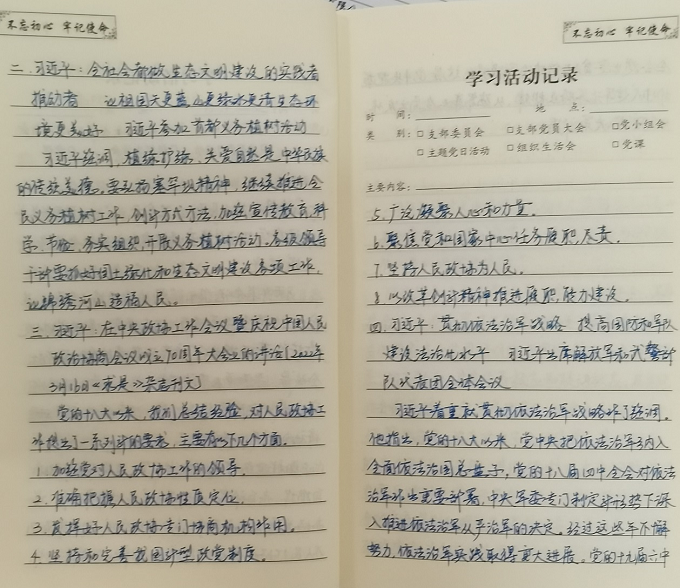 不忘初心 牢记使命
二.习近平:全社会都做生态文明建设的实践者
推动者 让祖国天更蓝山更绿水更清生态环
境更美好 习近平参加首都义务植树活动
习近平强调,植绿护绿、关爱自然是中华民族
的传统美德。要弘扬塞罕坝精神,继续推进全
民义务植树工作,创新方式方法,加强宣传教育,科
学、节俭、务实组织开展义务植树活动。各级领导
干部要抓好国土绿化和生态文明建设各项工作,
让锦绣河山造福人民。
三.习近平:在中央政协工作会议暨庆祝中国人民
政治协商会议成立70周年大会上的讲话[2022年
3月16日《求是》杂志刊文]
党的十八大以来,我们总结经验,对人民政协工
作提出了一系列新的要求,主要有以下几个方面。
1.加强党对人民政协工作的领导。
2.准确把握人民政协性质定位。
3.发挥好人民政协专门协商机构作用。
4.坚持和完善我国新型政党制度。
不忘初心 牢记使命
学习活动记录
时 间: 地 点:
类 别:□支部委员会 □支部党员大会 □党小组会
□主题党日活动 □组织生活会 □党课
主要内容:
5.广泛凝聚人心和力量。
6.聚焦党和国家中心任务履职尽责。
7.坚持人民政协为人民。
8.以改革创新精神推进履职能力建设。
四.习近平:贯彻依法治军战略 提高国防和军队
建设法治化水平 习近平出席解放军和武警部
队代表团全体会议
习近平着重就贯彻依法治军战略作了强调。
他指出,党的十八大以来,党中央把依法治军纳入
全面依法治国总盘子,党的十八届四中全会对依法
治军作出重要部署,中央军委专门制定新形势下深
入推进依法治军从严治军的决定。经过这些年不懈
努力,依法治军实践取得重大进展。党的十九届六中